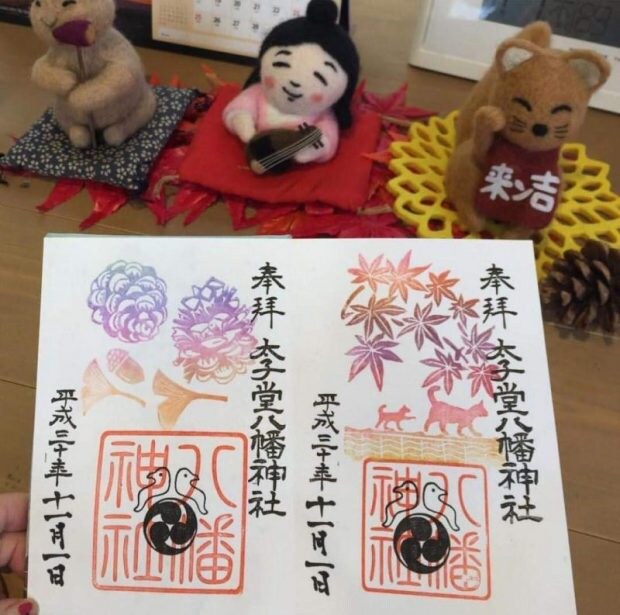 奉拝
太子堂八幡神社
八幡
神社
平成三十年十一月一日
奉拝
太子堂八幡神社
八幡
神社
平成三十年十一月一日